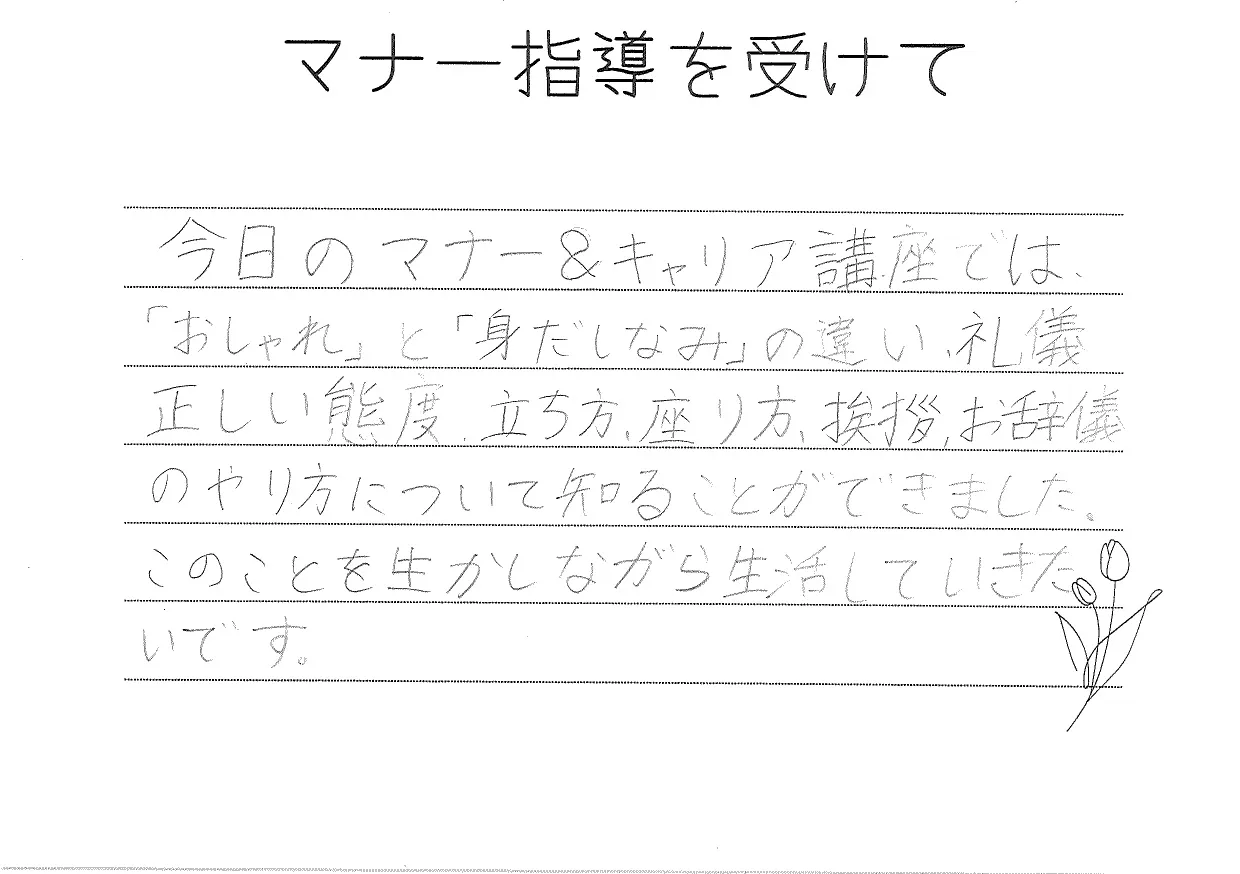 マナー指導を受けて
今日のマナー&キャリア講座では、
「おしゃれ」と「身だしなみ」の違い、礼儀
正しい態度、立ち方、座り方、挨拶、お辞儀
のやり方について知ることができました。
このことを生かしながら生活していきた
いです。